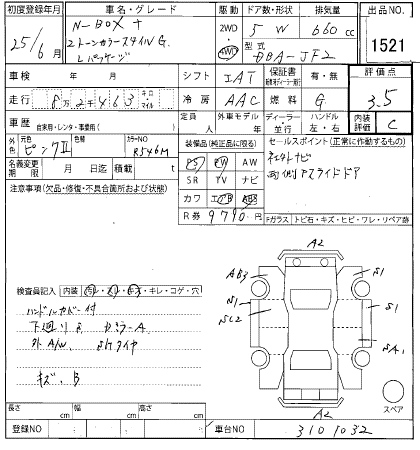 初度登録年 車名・グレード 駆動 ドア数・形状 排気量 出品NO.
25年6月 N-BOX + 2WD 5 W 660cc 1521
2トーンカラースタイルG. 4WD 型式 DBA-JF2
Lパッケージ
車検 年 月 シフト IAT 保証書 有・無 評価点
走行 8万2千463 キロ マイル 冷房 AAC 燃料 G 3.5
車歴 自家用・レンタ・事業用( ) 定員 人 外車モデル 年 ディーラー・並行 ハンドル 左・右 内装評価 C
外色 元色 ピンクII 色替 カラーNO R546M 装備品(純正品に限る) セールスポイント(正常に動作するもの)
名義変更期限 月 日迄 積載 t PS PW AW
注意事項(欠品・修復・不具合箇所および状態) SR TV ナビ
カワ エアB ABS
R券 9790円 Fガラス トビ石・キズ・ヒビ・ワレ・リペア跡
検査員記入 内装 汚レ・スレ・キズ・キレ・コゲ・穴
ハンドルカバー付
キズ、B
A2
AB3 S1
S1
SA1
A2
スペア
長さ cm 幅 cm 高さ cm
登録NO 車台NO 3101032